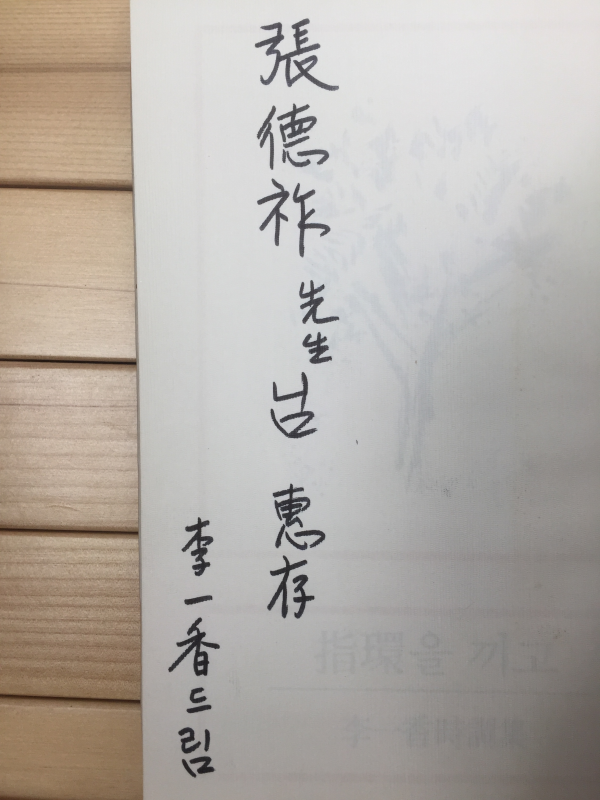 張德祚 先生님 惠存
李一香드림
指環을 끼고
李一香時調集